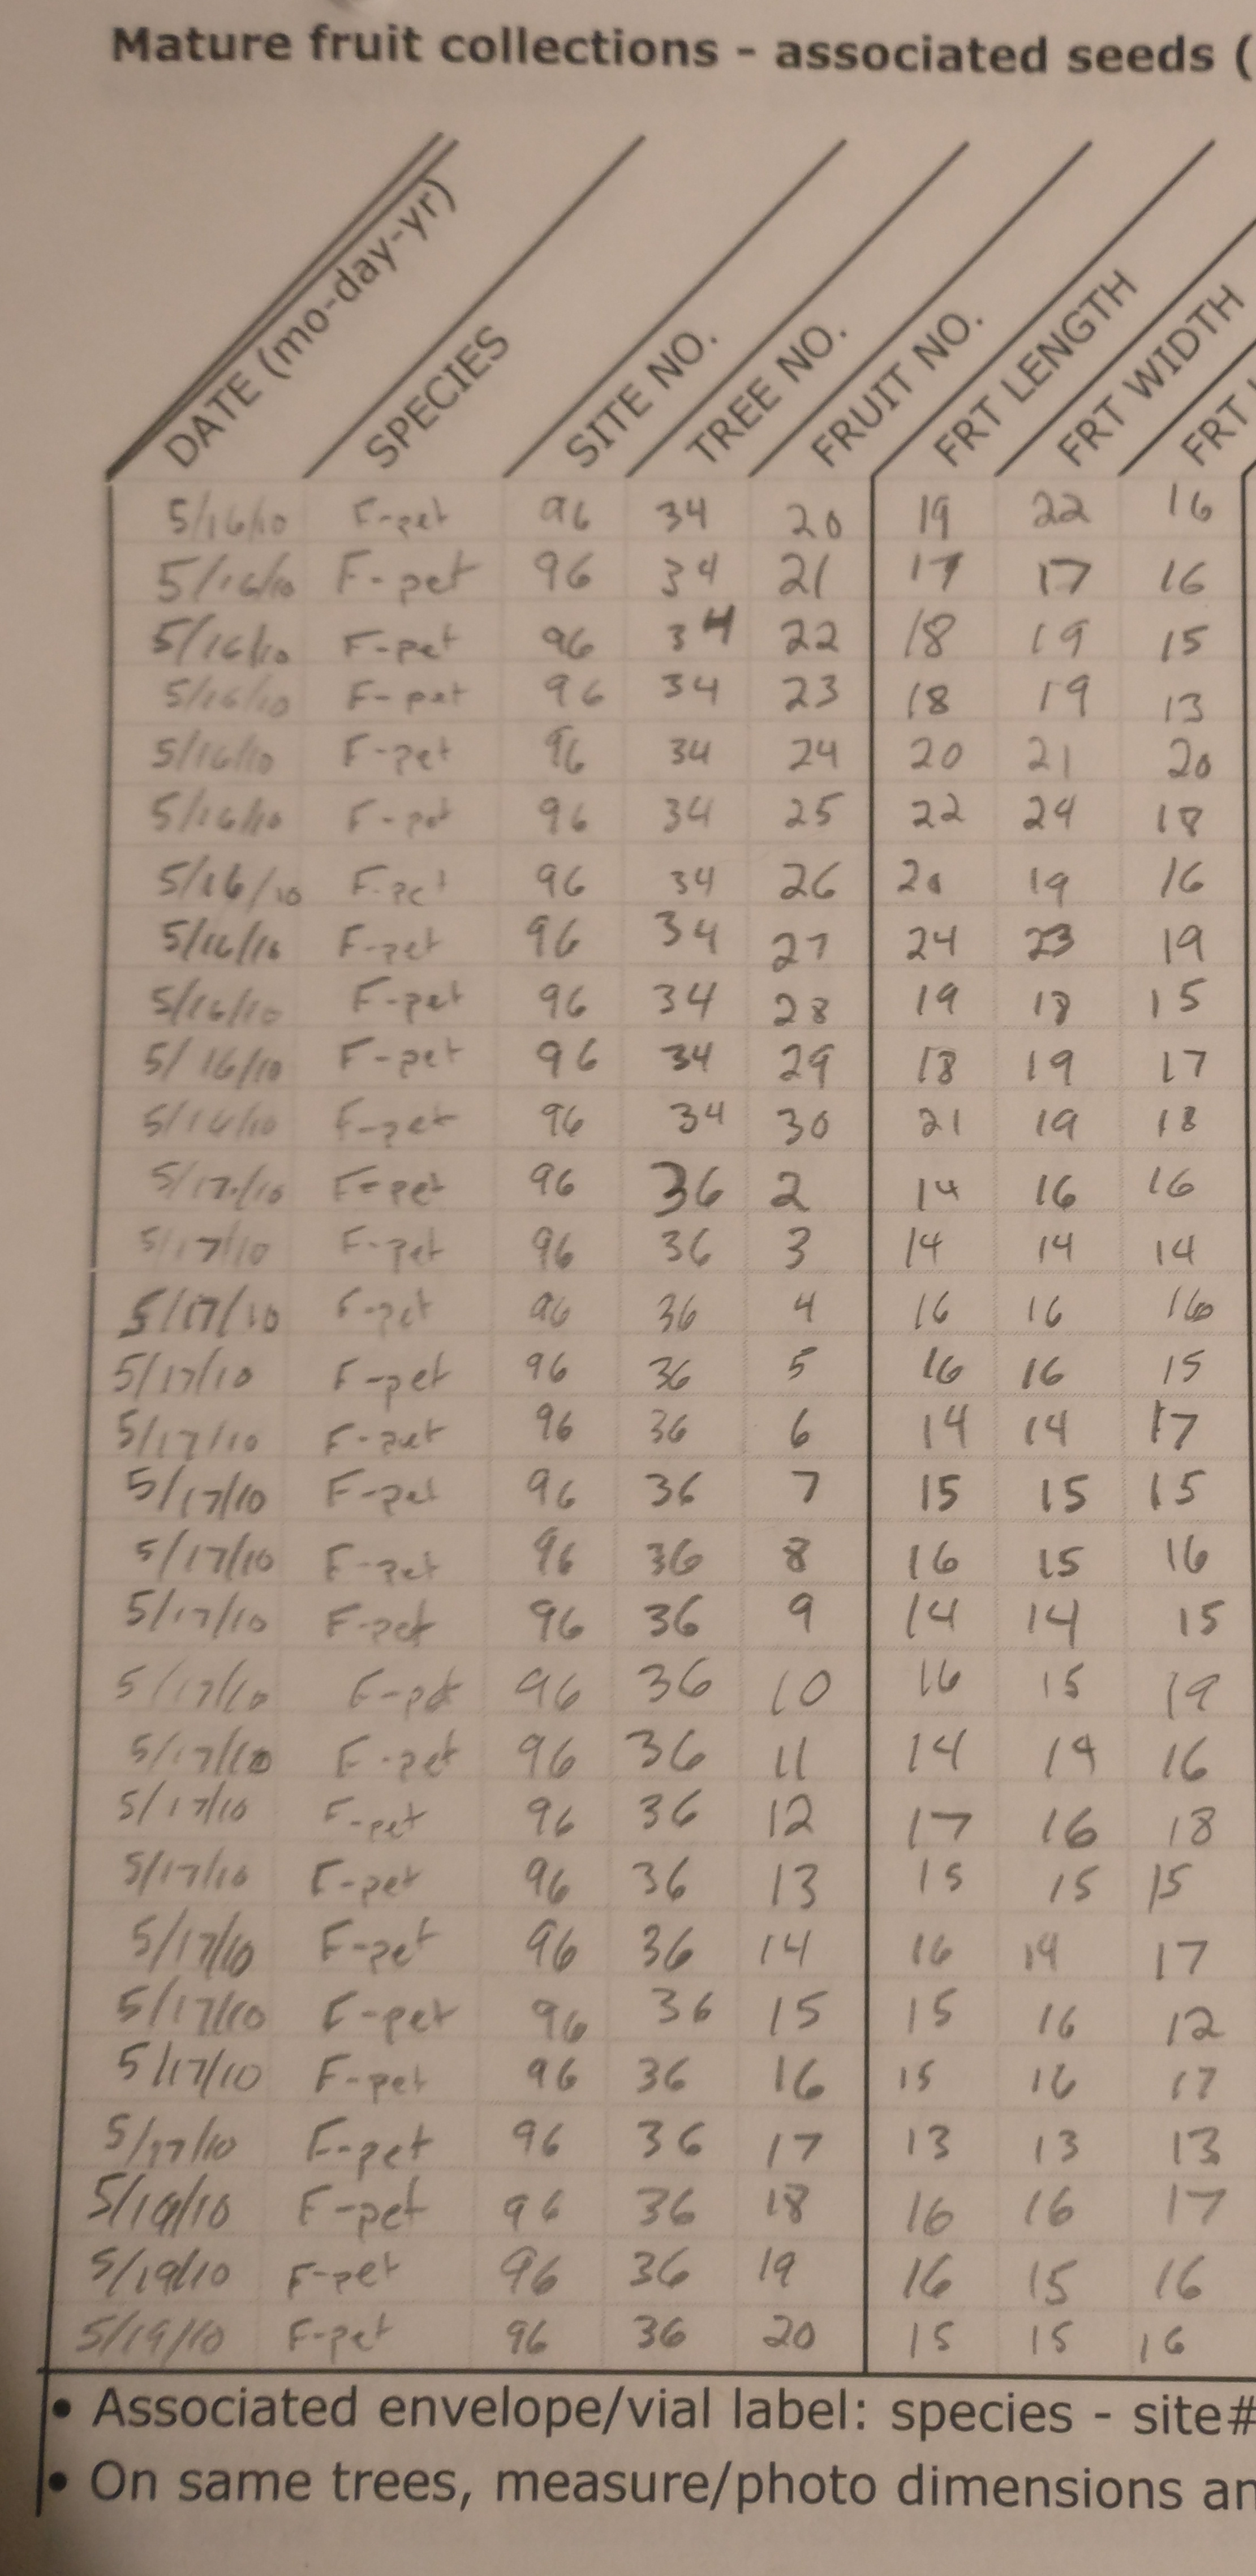 Mature fruit collections - associated seeds (
DATE (mo-day-yr) SPECIES SITE NO. TREE NO. FRUIT NO. FRT LENGTH FRT WIDTH FRT
5/16/10 F-pet 96 34 20 19 22 16
5/16/10 F-pet 96 34 21 17 17 16
5/16/10 F-pet 96 34 22 18 19 15
5/16/10 F-pet 96 34 23 18 19 13
5/16/10 F-pet 96 34 24 20 21 20
5/16/10 F-pet 96 34 25 22 24 18
5/16/10 F-pet 96 34 26 20 19 16
5/16/10 F-pet 96 34 27 24 23 19
5/16/10 F-pet 96 34 28 19 18 15
5/16/10 F-pet 96 34 29 18 19 17
5/16/10 F-pet 96 34 30 21 19 18
5/17/10 F-pet 96 36 2 14 16 16
5/17/10 F-pet 96 36 3 14 14 14
5/17/10 F-pet 96 36 4 16 16 16
5/17/10 F-pet 96 36 5 16 16 15
5/17/10 F-pet 96 36 6 14 14 17
5/17/10 F-pet 96 36 7 15 15 15
5/17/10 F-pet 96 36 8 16 15 16
5/17/10 F-pet 96 36 9 14 14 15
5/17/10 F-pet 96 36 10 16 15 19
5/17/10 F-pet 96 36 11 14 14 16
5/17/10 F-pet 96 36 12 17 16 18
5/17/10 F-pet 96 36 13 15 15 15
5/17/10 F-pet 96 36 14 16 14 17
5/17/10 F-pet 96 36 15 15 16 12
5/17/10 F-pet 96 36 16 15 16 17
5/17/10 F-pet 96 36 17 13 13 13
5/19/10 F-pet 96 36 18 16 16 17
5/19/10 F-pet 96 36 19 16 15 16
5/19/10 F-pet 96 36 20 15 15 16
• Associated envelope/vial label: species - site#
• On same trees, measure/photo dimensions an